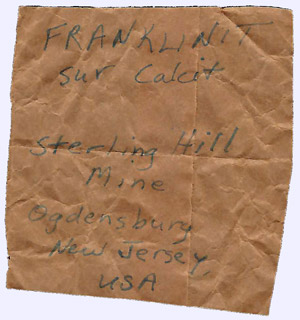 FRANKLINIT
sur Calcit
Sterling Hill
Mine
Ogdensburg
New Jersey,
USA